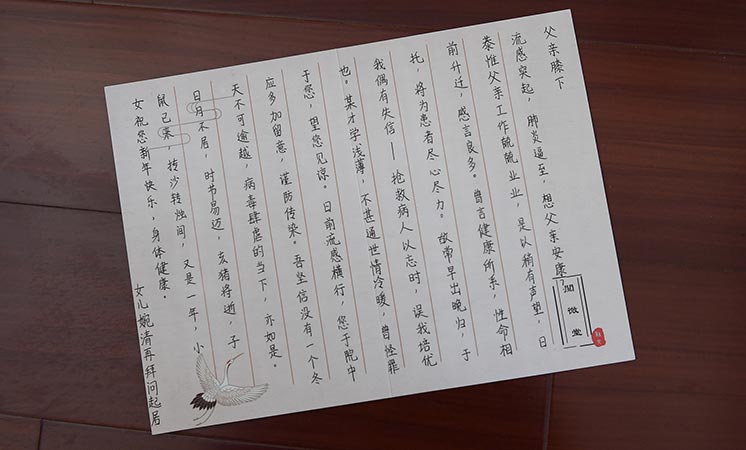 父亲膝下
流感突起，肺炎逼至，想父亲安康，
恭惟父亲工作兢兢业业，是以稍有声望，日
前升迁，感言良多。曾言健康所系，性命相
托，将为患者尽心尽力。故常早出晚归，于
我偶有失信——抢救病人以忘时，误我培优
也。某才学浅薄，不甚通世情冷暖，曾怪罪
于您，望您见谅。日前流感横行，您于院中
应多加留意，谨防传染。吾坚信没有一个冬
天不可逾越，病毒肆虐的当下，亦如是。
日月不居，时节易迈，亥猪将逝，子
鼠已来，抟沙转烛间，又是一年，小
女祝您新年快乐，身体健康。
女儿婉清再拜问起居
閱微堂